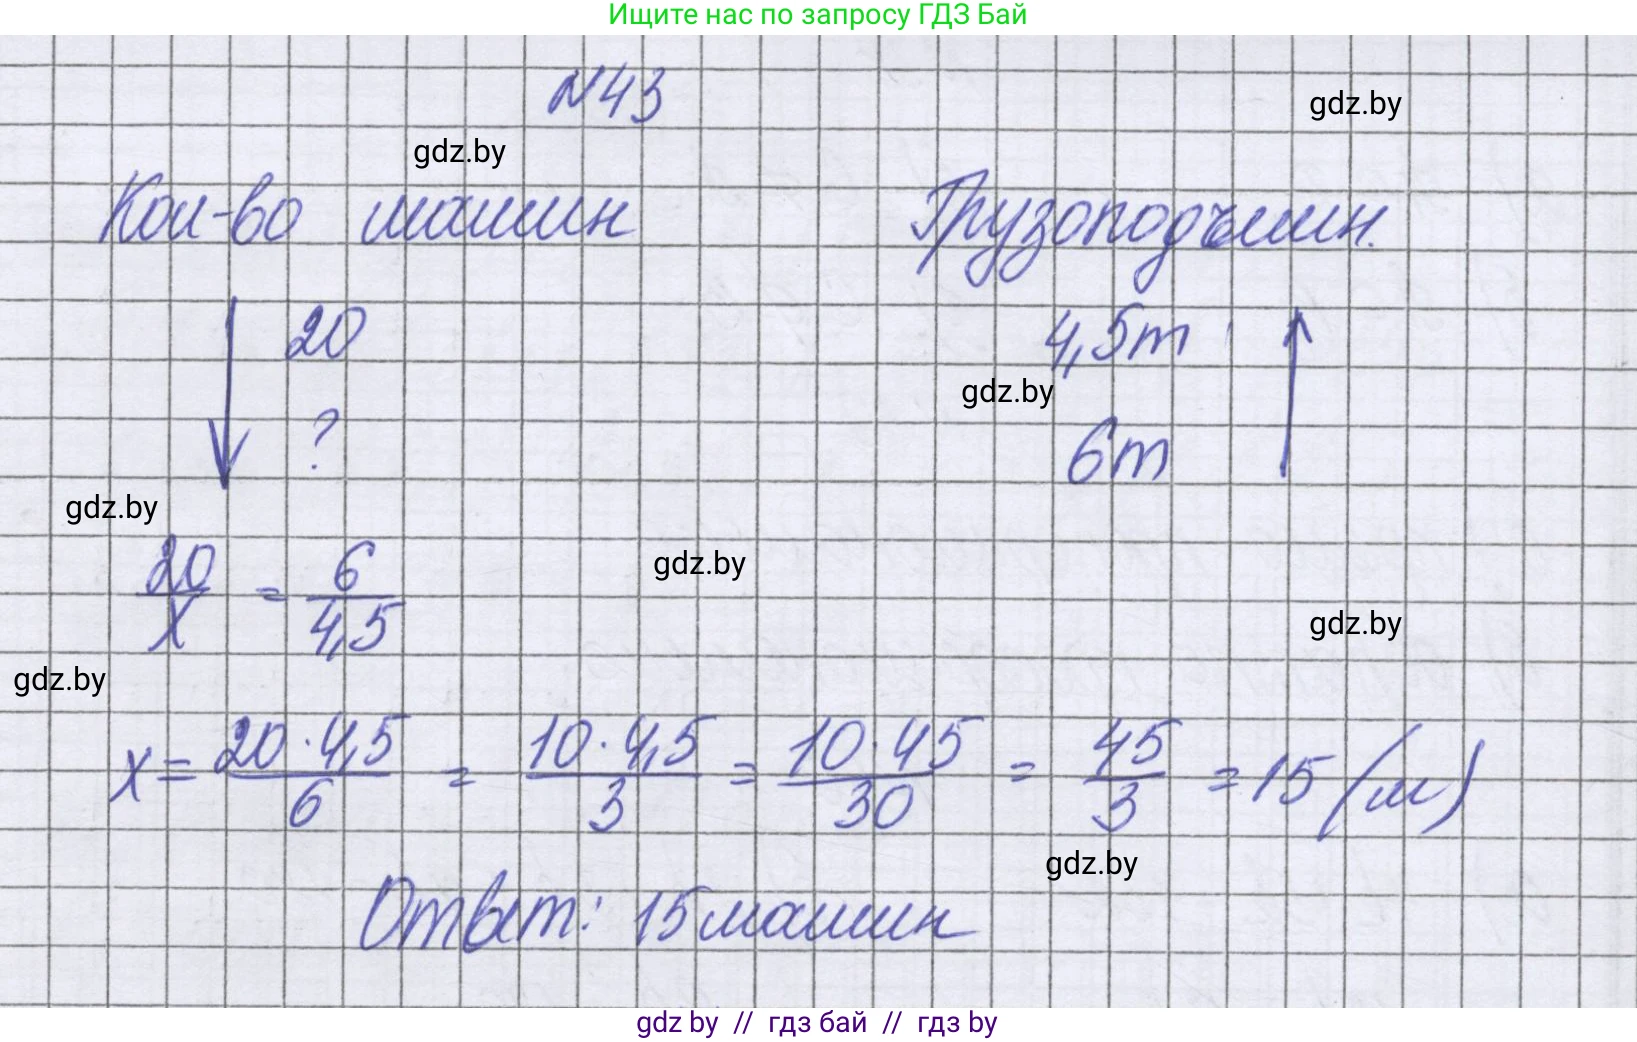 Ищите нас по запросу ГДЗ Бай
N43
gdz.by
gdz.by
Кол-во машин Грузоподъемн.
20 4,5т
gdz.by
? 6т
gdz.by
20/x = 6/4,5
gdz.by
gdz.by
gdz.by
x = 20·4,5/6 = 10·4,5/3 = 10·45/30 = 45/3 = 15 (м)
gdz.by
Ответ: 15 машин
gdz by // гдз бай // гдз by